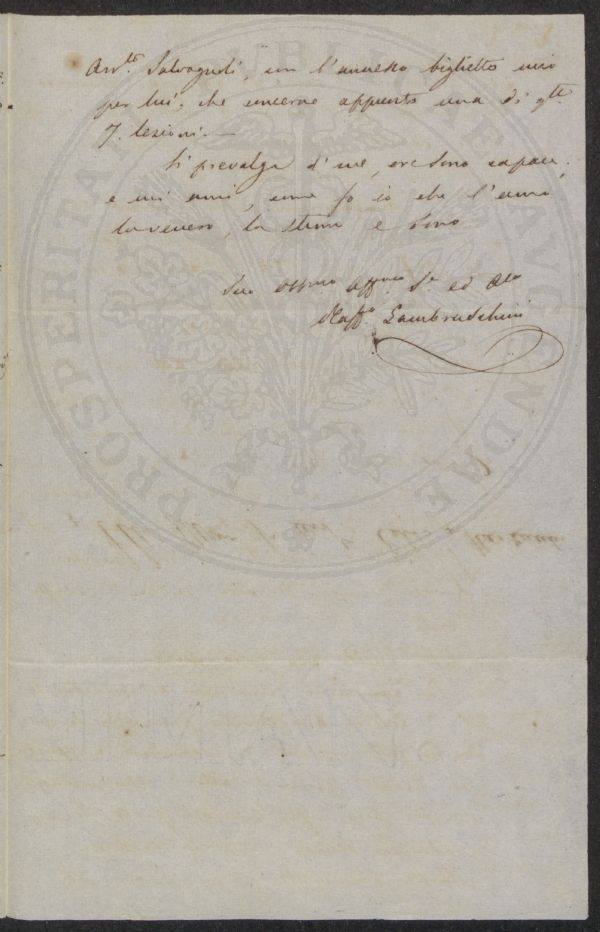 Avv.to Salvagnoli, con l'annesso biglietto mio
per lui, che concerne appunto una di q.te
7. lezioni. —
Si prevalga di me, ove sono capace,
e mi ami, come fo io che l'amo,
la venero, la stimo e sono
Suo Affmo S.e ed A.co
Raff.o Lambruschini
PROSPERITATI PUBLICAE AUGENDAE